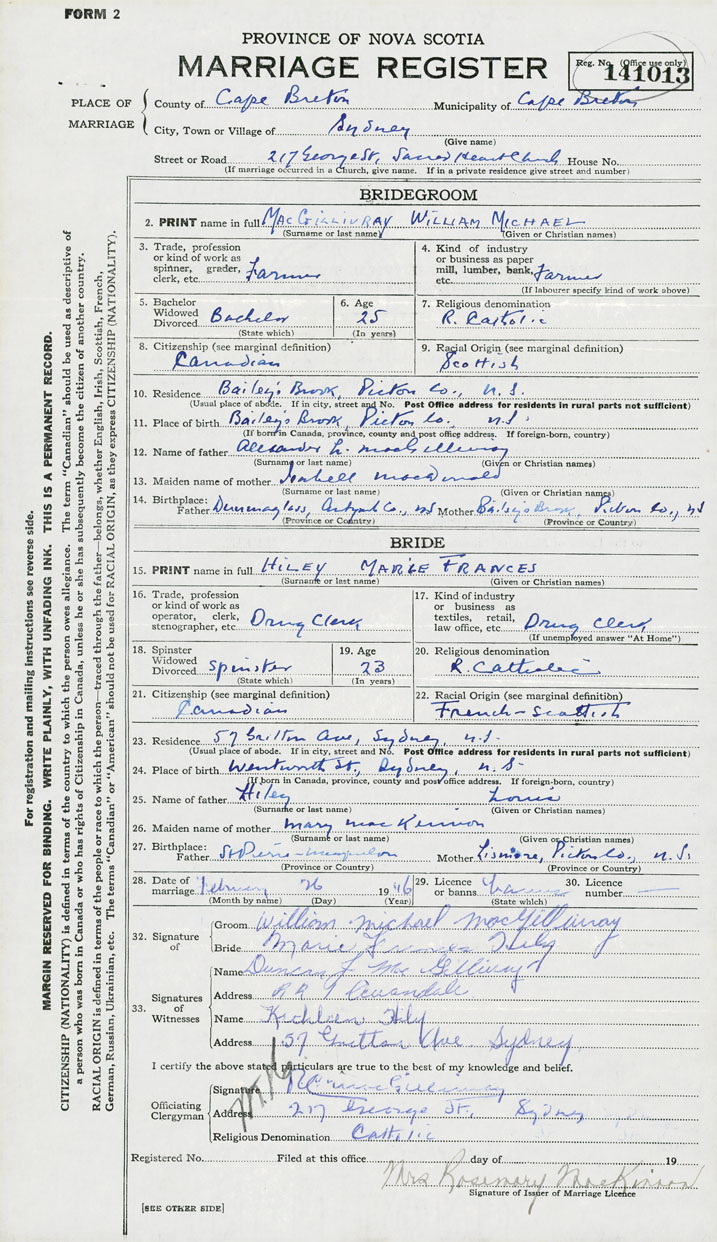 FORM 2
PROVINCE OF NOVA SCOTIA
MARRIAGE REGISTER
Reg. No. (Office use only)
141013
PLACE OF MARRIAGE
County of Cape Breton Municipality of Cape Breton
City, Town or Village of Sydney
(Give name)
Street or Road 217 George St, Sacred Heart Church House No.
(If marriage occurred in a Church, give name. If in a private residence give street and number)
BRIDEGROOM
2. PRINT name in full MacGillivray William Michael
(Surname or last name) (Given or Christian names)
3. Trade, profession or kind of work as spinner, grader, clerk, etc. Farmer
4. Kind of industry or business as paper mill, lumber, bank, etc. Farmer
(If labourer specify kind of work above)
5. Bachelor Widowed Divorced Bachelor
(State which)
6. Age 25
(In years)
7. Religious denomination
R. Catholic
8. Citizenship (see marginal definition)
Canadian
9. Racial Origin (see marginal definition)
Scottish
10. Residence Bailey's Brook, Pictou Co., N.S.
(Usual place of abode. If in city, street and No. Post Office address for residents in rural parts not sufficient)
11. Place of birth Bailey's Brook, Pictou Co., N.S.
(If born in Canada, province, county and post office address. If foreign-born, country)
12. Name of father Alexander MacGillivray
(Surname or last name) (Given or Christian names)
13. Maiden name of mother Isabell MacDonald
(Surname or last name) (Given or Christian names)
14. Birthplace:
Father Dunmaglass, Co., NS Mother Bailey's Brook, Pictou Co., NS
(Province or Country) (Province or Country)
BRIDE
15. PRINT name in full Hiley Marie Frances
(Surname or last name) (Given or Christian names)
16. Trade, profession or kind of work as operator, clerk, stenographer, etc. Drug Clerk
17. Kind of industry or business as textiles, retail, law office, etc. Drug Clerk
(If unemployed answer "At Home")
18. Spinster Widowed Divorced Spinster
(State which)
19. Age 23
(In years)
20. Religious denomination
R. Catholic
21. Citizenship (see marginal definition)
Canadian
22. Racial Origin (see marginal definition)
French-Scottish
23. Residence 57 Ave, Sydney, N.S.
(Usual place of abode. If in city, street and No. Post Office address for residents in rural parts not sufficient)
24. Place of birth Wentworth St, Sydney, N.S.
(If born in Canada, province, county and post office address. If foreign-born, country)
25. Name of father Hiley Louis
(Surname or last name) (Given or Christian names)
26. Maiden name of mother Mary MacKinnon
(Surname or last name) (Given or Christian names)
27. Birthplace:
Father St Pierre-Miquelon Mother Lismore, Pictou Co., N.S.
(Province or Country) (Province or Country)
28. Date of marriage February 26 1946
(Month by name) (Day) (Year)
29. Licence or banns Banns
(State which)
30. Licence number —
32. Signature of
Groom William Michael MacGillivray
Bride Marie Frances
33. Signatures of Witnesses
Name Duncan J. McGillivray
Address R R Avondale
Name Kathleen
Address 57 Ave Sydney
I certify the above stated particulars are true to the best of my knowledge and belief.
Officiating Clergyman
Signature MacGillivray
Address 217 George St. Sydney
Religious Denomination Catholic
Registered No. Filed at this office day of 19
Mrs Rosemary MacKinnon
Signature of Issuer of Marriage Licence
[SEE OTHER SIDE]
For registration and mailing instructions see reverse side.
MARGIN RESERVED FOR BINDING. WRITE PLAINLY, WITH UNFADING INK. THIS IS A PERMANENT RECORD.
CITIZENSHIP (NATIONALITY) is defined in terms of the country to which the person owes allegiance. The term "Canadian" should be used as descriptive of
a person who was born in Canada or who has rights of Citizenship in Canada, unless he or she has subsequently become the citizen of another country.
RACIAL ORIGIN is defined in terms of the people or race to which the person—traced through the father—belongs, whether English, Irish, Scottish, French,
German, Russian, Ukrainian, etc. The terms "Canadian" or "American" should not be used for RACIAL ORIGIN, as they express CITIZENSHIP (NATIONALITY).